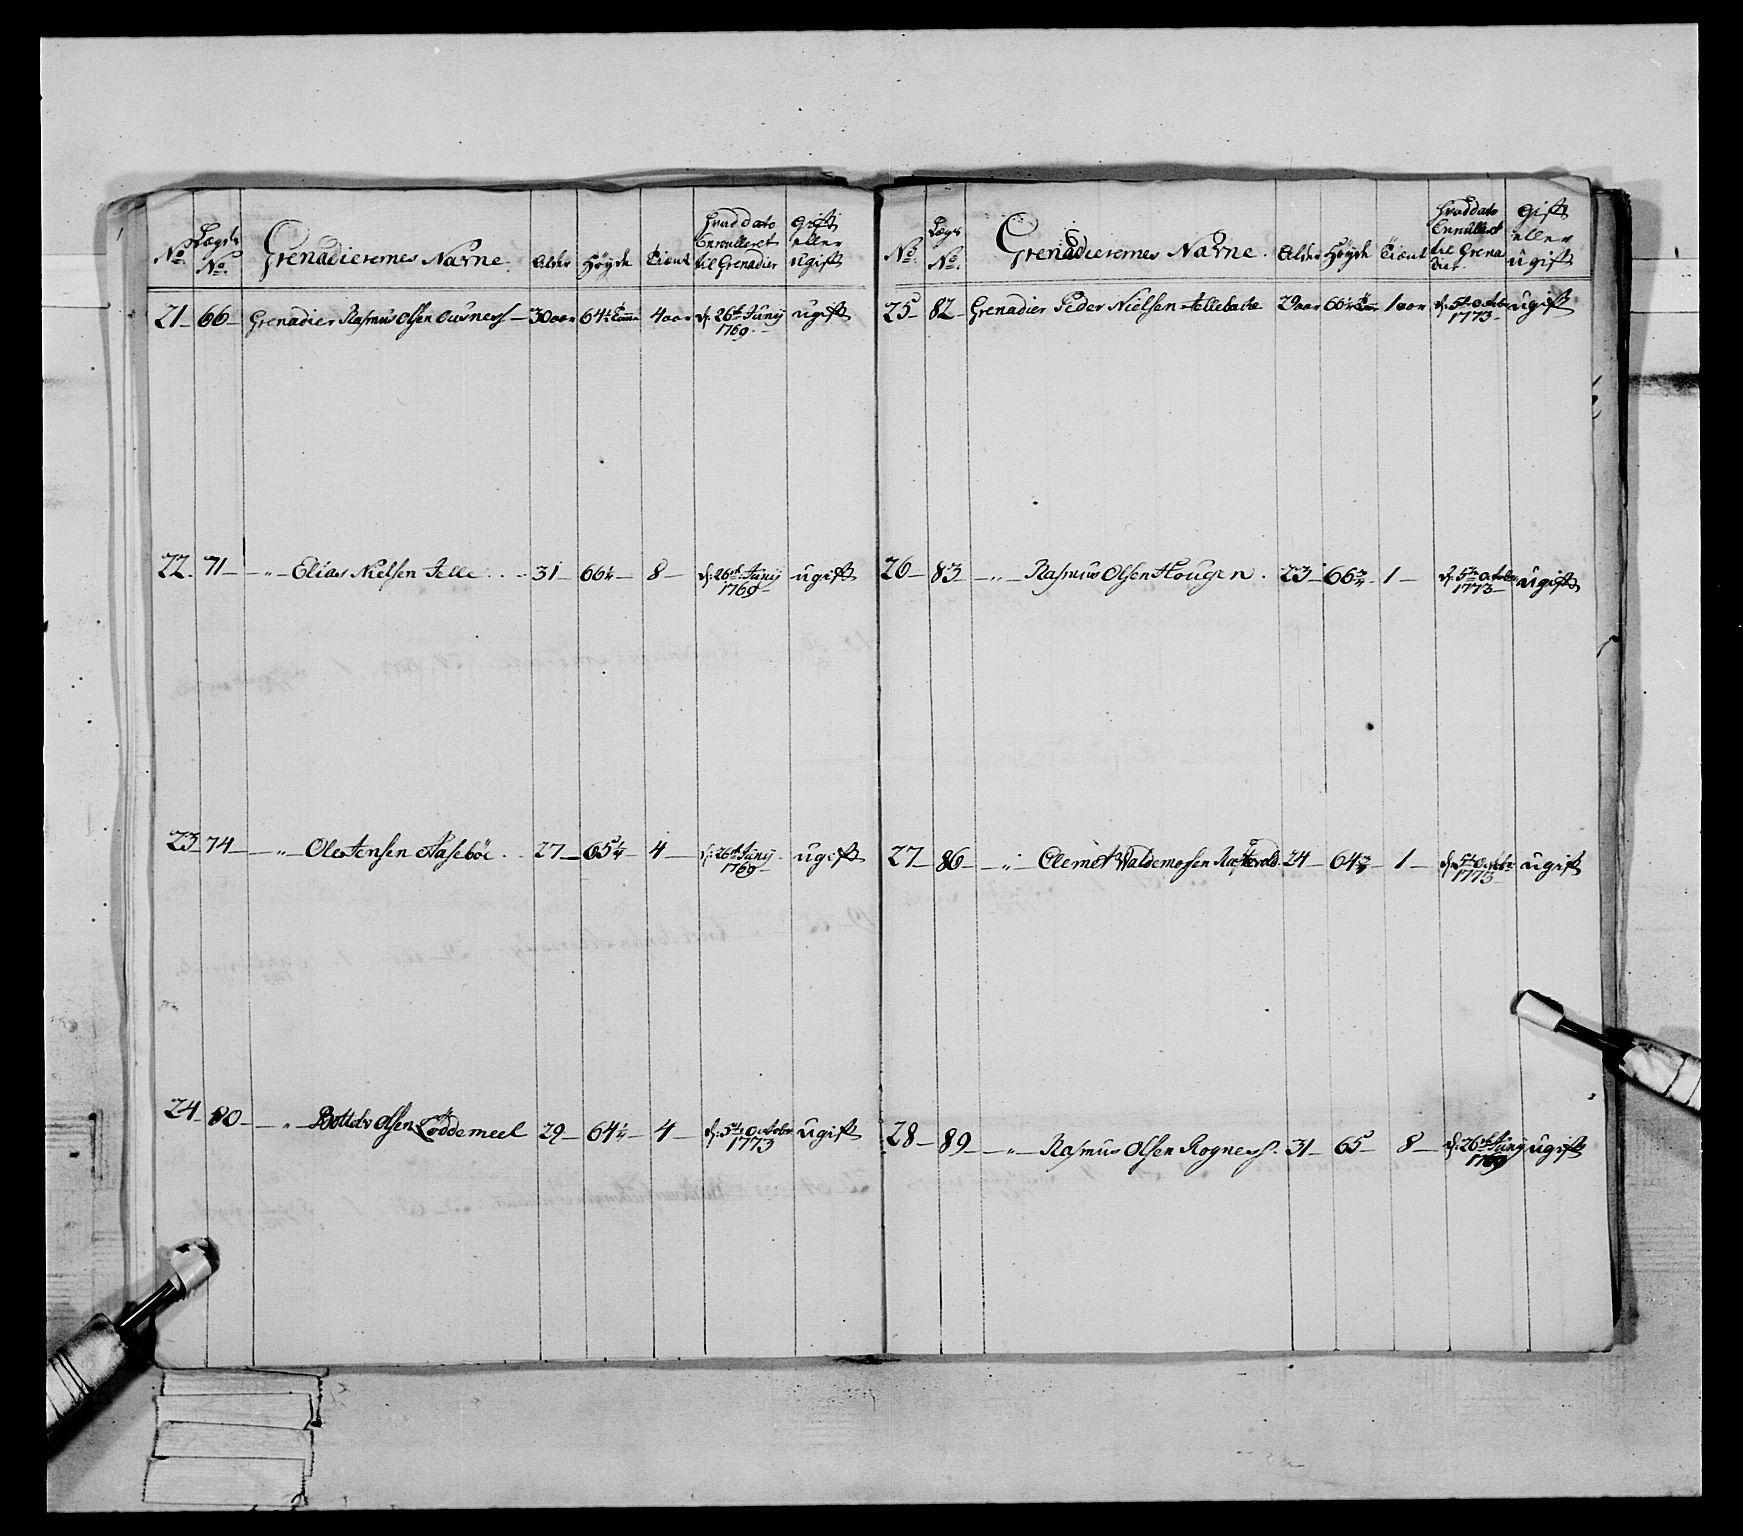 No. Lægds No. Grenadierernes Navne. Alder Høyde Tient Hvad dato Enrulleret til Grenadier Gift eller ugift
21 - 66 - Grenadier Rasmus Olsen Ousness - 30 aar 64¼ Tomme 4 aar d: 26de Junij 1769 - ugift
22 - 71 - - " - Elias Nielsen Telle . . - 31 - 66¼ - 8 - d: 26de Junij 1769 - ugift
23 - 74 - - " - Ole Jensen Aaseböe . . 27 - 65¼ - 4 - d: 26de Junij 1769 - ugift
24 - 80 - - " - Bottelv Olsen Löddemeel 29 - 64¼ - 4 - d: 5te Octobr 1773 ugift
No. Lægds No. Grenadierernes Navne. Alder Høyde Tient Hvad dato Enrulleret til Grenadier Gift eller ugift
25 - 82 - Grenadier Peder Nielsen 29 aar 1 aar d: 5te Octobr 1773 - ugift
26 - 83 - - " - Rasmus Olsen Hougen . 23 - 66¾ - 1 - d: 5te Octobr 1773 - ugift
27 - 86 - - " - Clemet Waldemarsen 24 - 64¾ - 1 - d: 5te Octobr 1773 - ugift
28 - 89 - - " - Rasmus Olsen Rogness . 31 - 65 - 8 - d: 26de Junij 1769 ugift